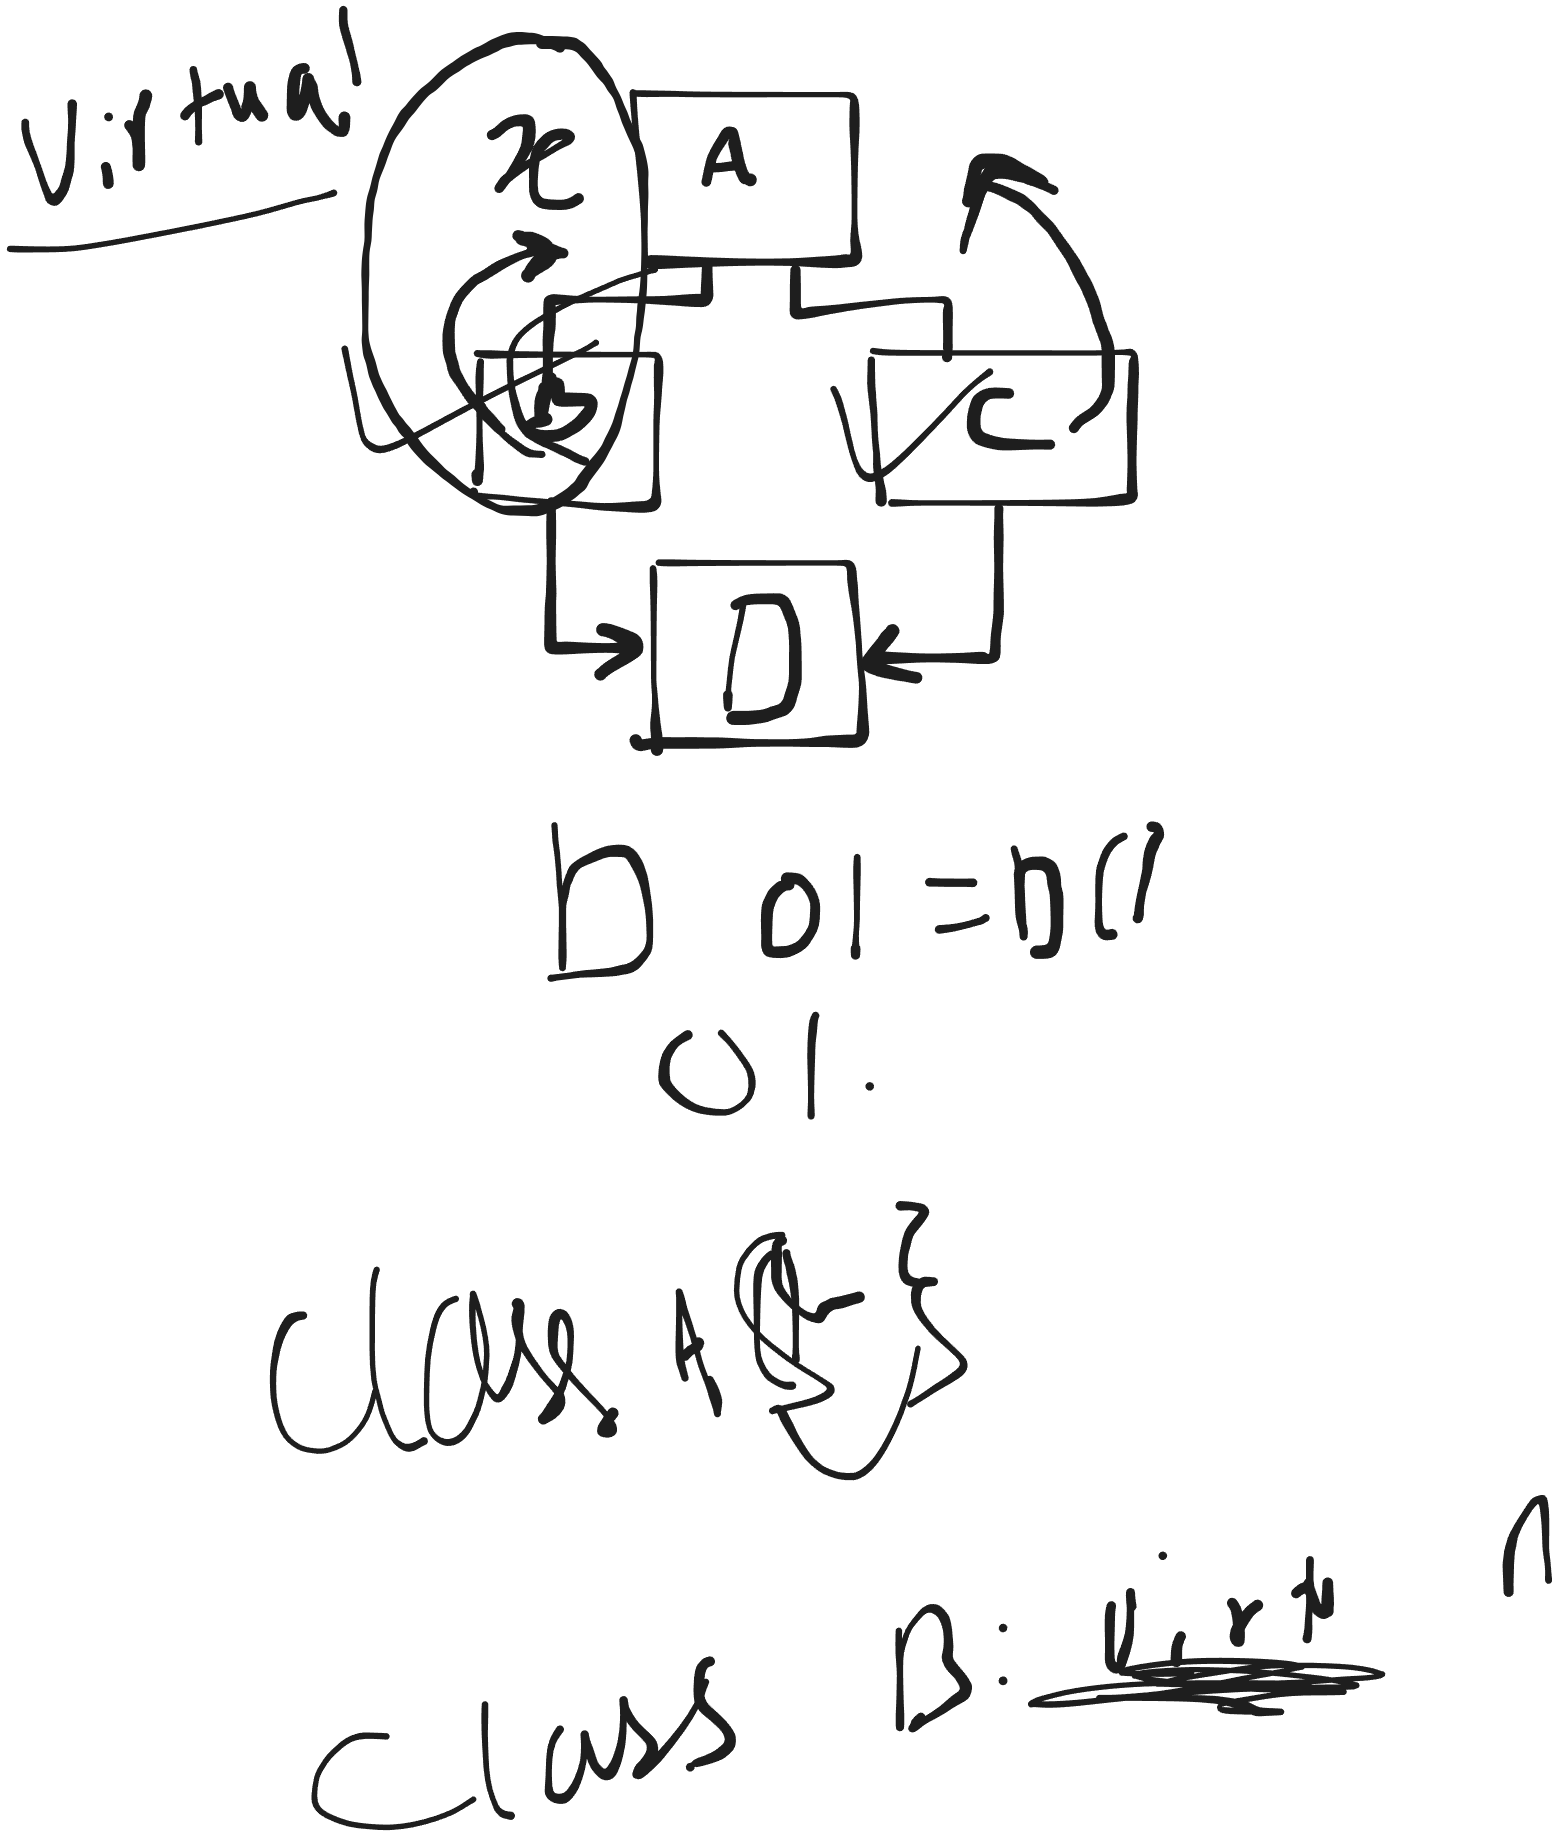 Virtual
x
A
C
D
D o1 = D()
o1.
class A { }
class B: virtu